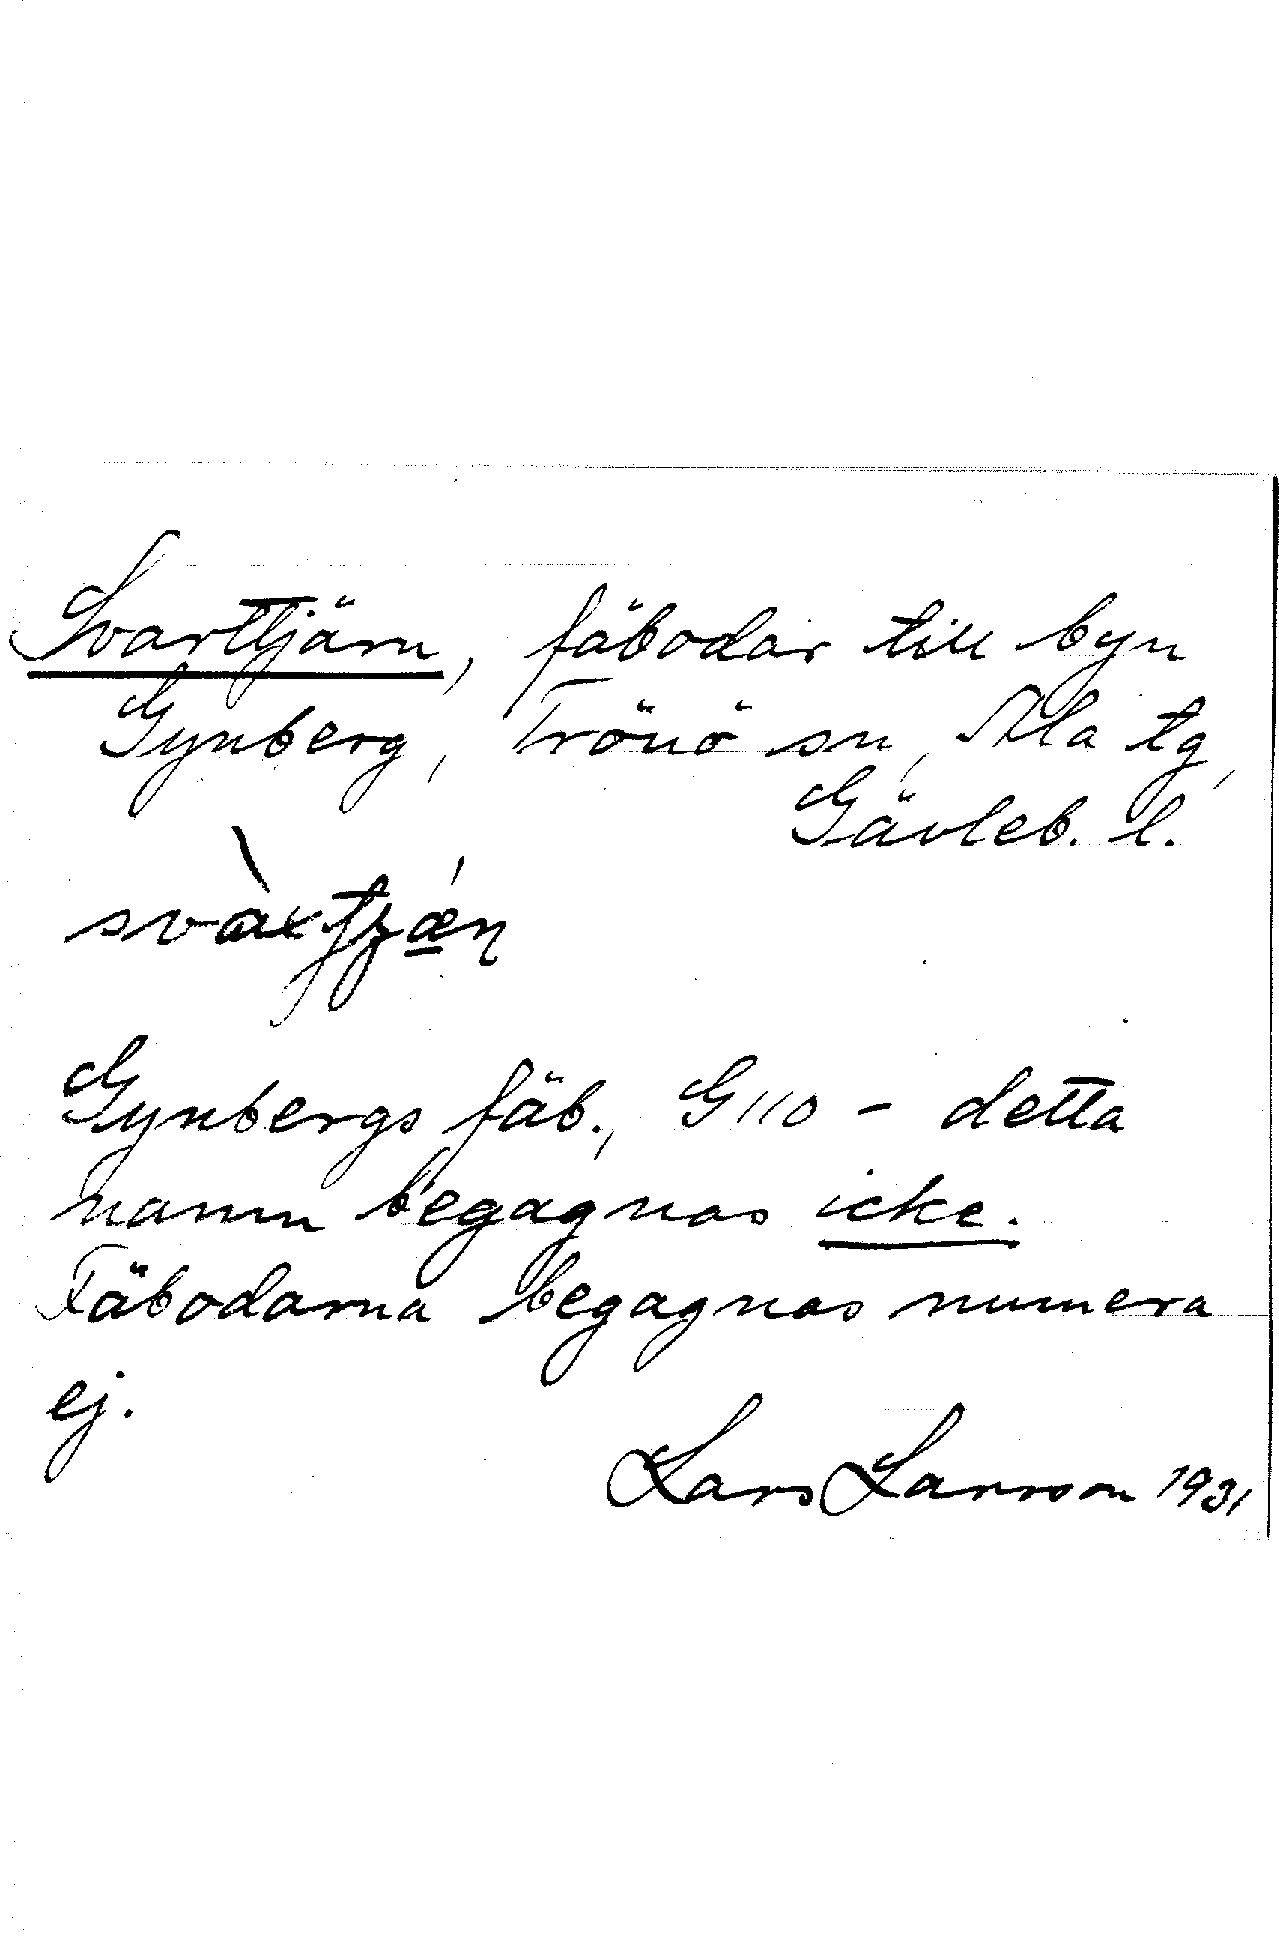 Svarttjärn, fäbodar till byn
Gynberg, Trönö sn, Ala tg,
Gävleb. l.
Gynbergs fäb., G110 – detta
namn begagnas icke.
Fäbodarna begagnas numera
ej.
Lars Larsson 1931